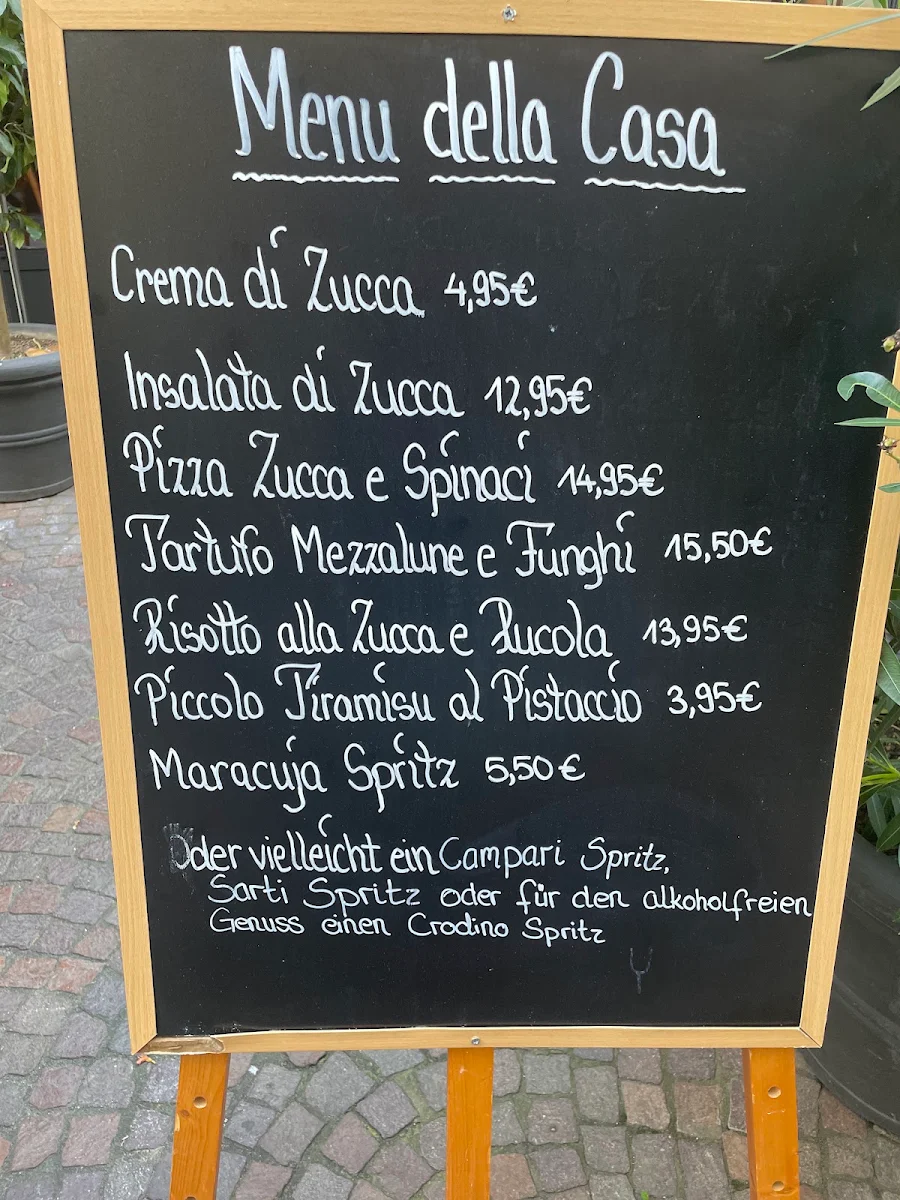 Menu della Casa
Crema di Zucca 4,95€
Insalata di Zucca 12,95€
Pizza Zucca e Spinaci 14,95€
Tartufo Mezzalune e Funghi 15,50€
Risotto alla Zucca e Rucola 13,95€
Piccolo Tiramisu al Pistaccio 3,95€
Maracuja Spritz 5,50€
Oder vielleicht ein Campari Spritz,
Sarti Spritz oder für den alkoholfreien
Genuss einen Crodino Spritz